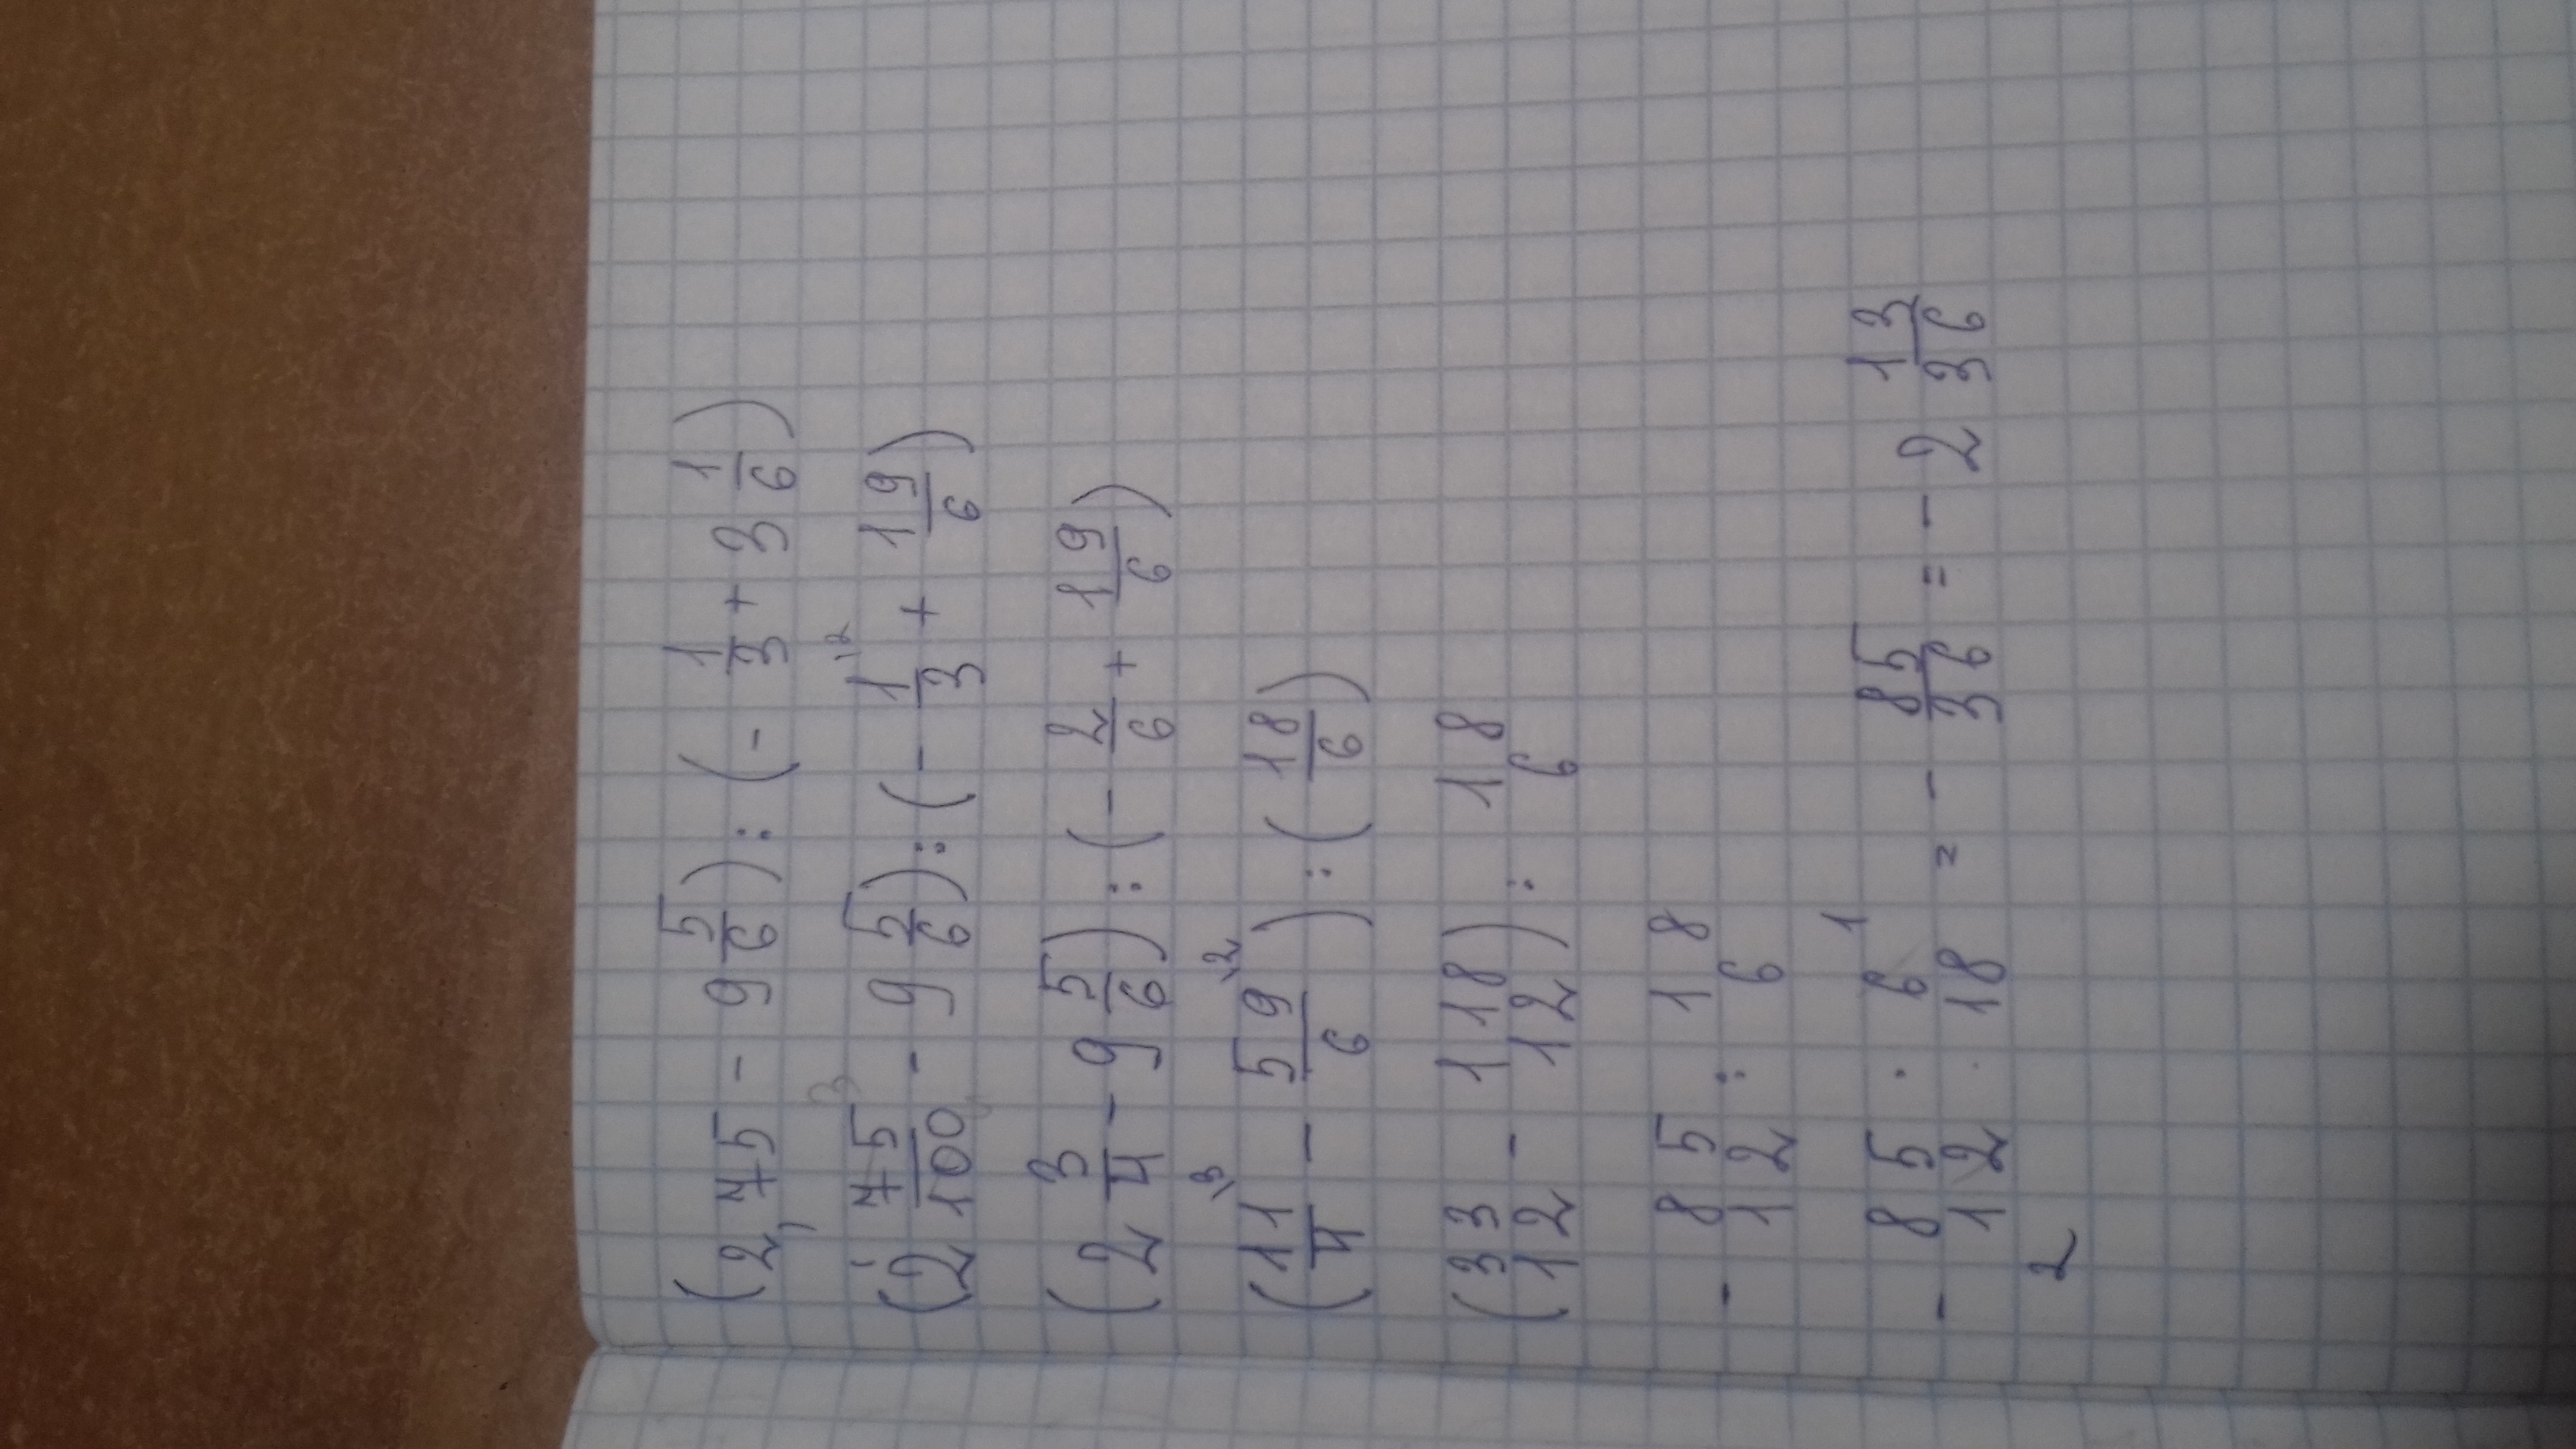 (2,75 - 9 5/6) : (- 1/3 + 3 1/6)
(2 75/100 - 9 5/6) : (- 1/3 \2 + 19/6)
(2 3/4 - 9 5/6) : (- 2/6 + 19/6)
(11/4 \3 - 59/6 \2) : (18/6)
(33/12 - 118/12) : 18/6
- 85/12 : 18/6
- 85/12 · 6/18 1 = - 85/36 = - 2 13/36
2